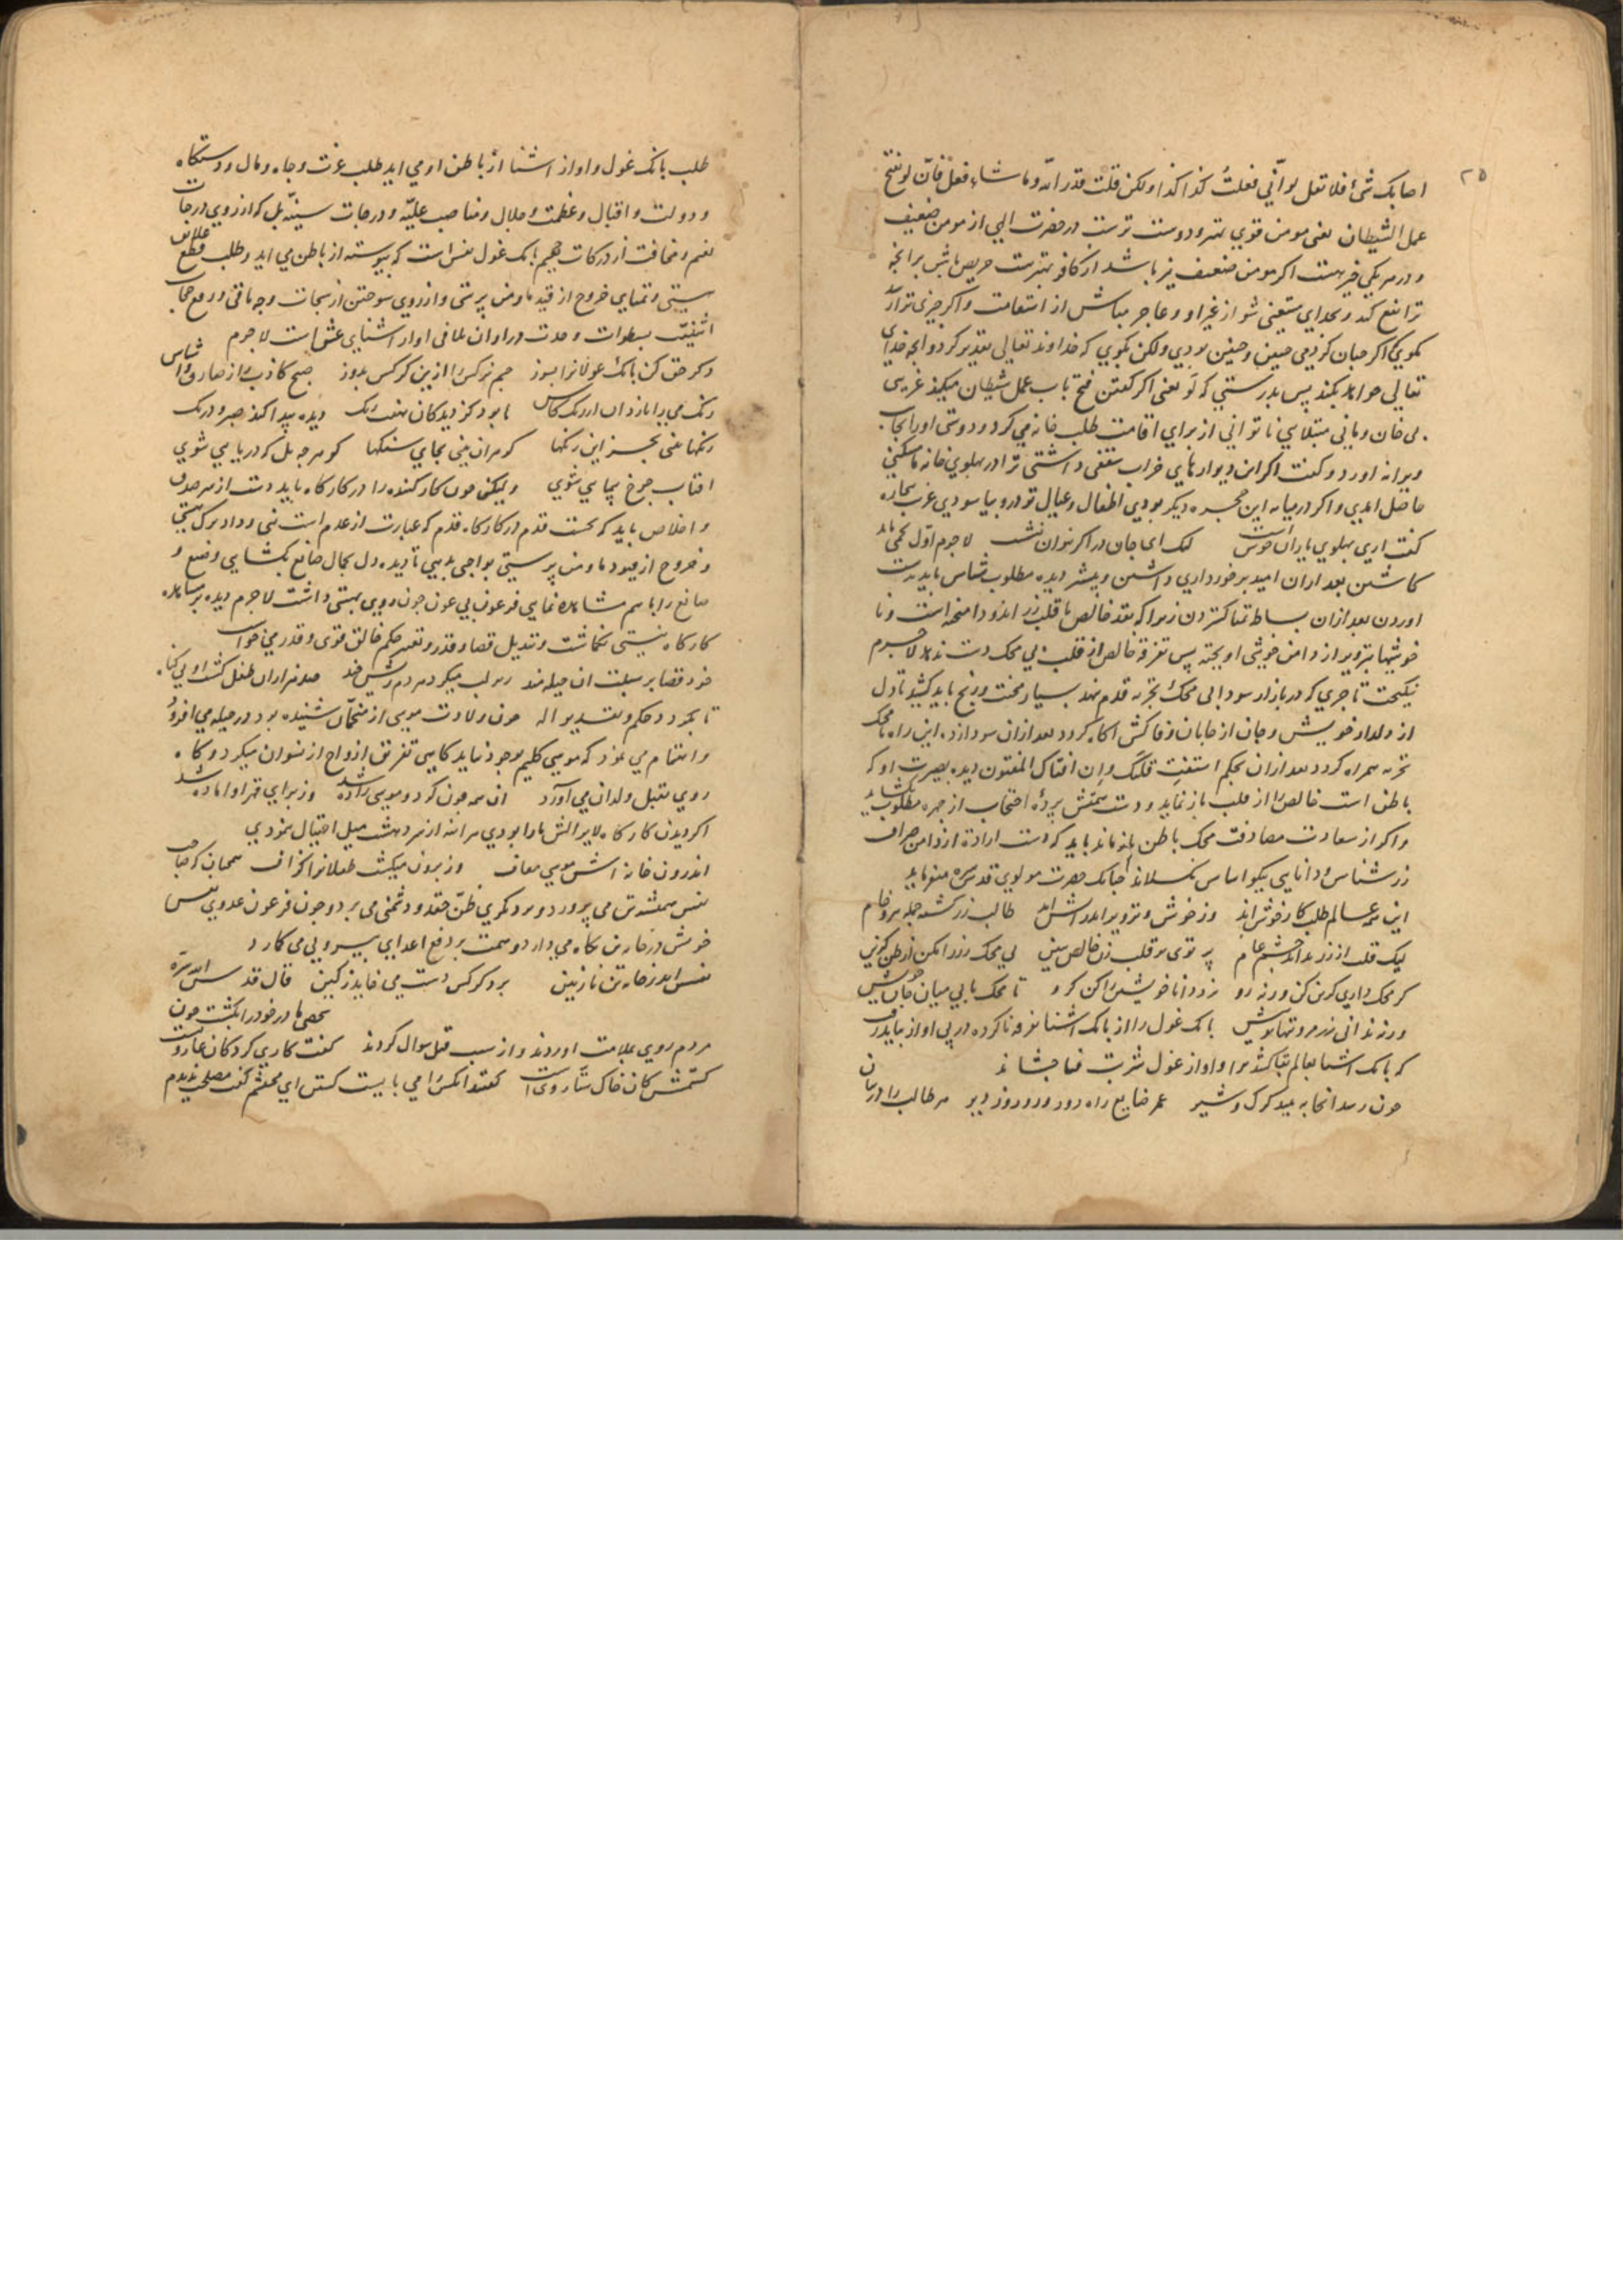 ٢٥
اصابک شیٔ فلا تقل لو انّی فعلتُ کذا کذا ولکن قلت قدر الله وما شاء فعل فانّ لو تفتح
عمل الشیطان یعنی مومن قوی بهتر و دوست ترست در حضرت الهی از مومن ضعیف
و در هر یکی خیر هست اکر مومن ضعیف نیز باشد از کافر بهترست حریص باش بر انچه
ترا نفع کند و بخدای مستعین شو از غیر او و عاجز مباش از استعانت و اکر چیزی ترا رسد
مکوی که اکر چنان کردمی چنین و چنین بودی ولکن بکوی که خداوند تعالی تقدیر کرد و انچه خدای
تعالی خواهد بکند پس بدرستی که لَو یعنی اکر کفتن فتح باب عمل شیطان میکند غریبی
بی خان و مانی مبتلای ناتوانی از برای اقامت طلب خانه می کرد و دوستی او را بجانب
ویرانه اورد و کفت اکر این دیوارهای خراب سقفی داشتی ترا در پهلوی خانه ما مسکنی
حاصل امدی و اکر در میانه این حجره دیکر بودی اطفال و عیال تو درو بیاسودی غریب بیچاره
کفت اری پهلوی یاران خوشست لیک ای جان در اکر نتوان نشست لاجرم اوّل تخمی باید
کاشتن بعد ازان امید برخورداری داشتن و پیشتر دیده مطلوب شناس باید بدست
اوردن بعد ازان بساط تمنا کستردن زیرا که نقد خالص با قلب زر اندود امیخته است و نا
خوشیها بتزویر از دامن خوشی اویخته پس تفرقه خالص از قلب بی محک دست ندهد لاجرم
نیکبخت تاجری که در بازار سودا بی محک تجربه قدم ننهد بسیار محنت و رنج باید کشید تا دل
از دلدار خویش و جان از جانان وفاکش اکاه کردد بعد ازان سودا زده این راه با محک
تجربه همراه کردد بعد ازان بحکم استفتِ قلبک و اِن افتاک المفتون دیده بصیرت او که
باطن است خالص را از قلب باز نماید و دست همتش پردهٔ احتجاب از چهره مطلوب بکشاید
و اکر از سعادت مصادفت محک باطن باز ماند باید که دست ارادت از دامن صراف
زر شناس و دانایی نیکو اساس نکسلاند چنانک حضرت مولوی قدس سره میفرماید
این همه عالم طلب کار خوش اند وز خوش و تزویر اندر اتش اند طالب زر کشته جمله پیر و خام
لیک قلب از زر نداند چشم عام پرتوی بر قلب زن خالص ببین بی محک زر را مکن از ظن کزین
کر محک داری کزین کن ورنه رو نزد دانا خویشتن را کن کرو تا محک یابی میان جان خویش
ور ندانی ره مرو تنها تو پیش بانک غول را از بانک اشنا تفرقه ناکرده در پی اواز نباید رفت
که بانک اشنا بعالم بقا کشد ترا و اواز غول شربت فنا چشاند
چون رسد انجا به بیند کرک و شیر عمر ضایع راه دور و روز دیر هر طالب را در میان
طلب بانک غول و اواز اشنا از باطن او می اید طلب عزت و جاه و مال و دستکاه
و دولت و اقبال و عظمت و جلال و مناصب علیّه و درجات سنیّه بل که ارزوی درجات
نعیم و مخافت از درکات جحیم بانک غول نفس است که پیوسته از باطن می اید و طلب قطع علایق
هستی و تمنای خروج از قید ما و من پرستی و ارزوی سوختن از سبحات وجه باقی و رفع حجاب
اثنینیّت بسطوات وحدت در اوان تلاقی اواز اشنای عشق است لاجرم
ذکر حق کن بانک غولانرا بسوز چشم نرکس را ازین کرکس بدوز صبح کاذب را ز صادق وا شناس
رنک می را باز دان از رنک کاس تا بود کز دیدکان هفت رنک دیده پیدا کند صبر و درنک
رنکها بینی بجز این رنکها کوهران بینی بجای سنکها کوهر چه بل که دریایی شوی
افتاب چرخ پیمایی شوی ولیکن چون کارکننده را در کارکاه باید دست از سر صدق
و اخلاص باید که نخست قدم در کارکاه قدم که عبارت از عدم است نهی و داد ترک هستی
و خروج از قیود ما و من پرستی بواجبی بدهی تا دیده دل بجمال صانع بکشایی و صنع و
صانع را باهم مشاهده نمایی فرعون بی عون چون روی بهستی داشت لاجرم دیده بر مشاهده
کارکاه نیستی نکماشت و تبدیل قضا و قدر و تغییر حکم خالق قوی و قدر می خواست
خود قضا بر سبلت ان حیله مند زیر لب میکرد هر دم ریش خند صد هزاران طفل کشت او بی کناه
تا بکردد حکم و تقدیر اله چون ولادت موسی از منجّمان شنیده بود در حیله می افزود
و اهتمام می نمود که موسی کلیم بوجود نیاید کاهی تفریق ازواج از نسوان میکرد و کاه
روی بقتل ولدان می اورد ان همه خون کرد و موسی زاده شد وز برای قهر او اماده شد
اکر دیدن کارکاه لایزالش مارا بودی هر اینه از سر دهشت میل احتیال ننمودی
اندرون خانه اش موسی معاف وز برون میکشت طفلانرا کزاف همچنان که صاحب
نفس همیشه تن می پرورد و بر دیکری ظنّ حقد و دشمنی می برد و چون فرعون عدوی نفس
خویش در خانه تن نکاه می دارد و همت بر دفع اعدای بیرونی می کمارد
نفس اندر خانه تن نازنین بر دکر کس دست می خاید ز کین قال قدس الله سرّه
شخصی مادر خود را بکشت چون
مردم روی بملامت اوردند و از سبب قتل سوال کردند کفت کاری کرد کان عار ویست
کشتمش کان خاک ستّار ویست کفتند انکس را می بایست کشتن ای محتشم کفت مصلحت ندیدم